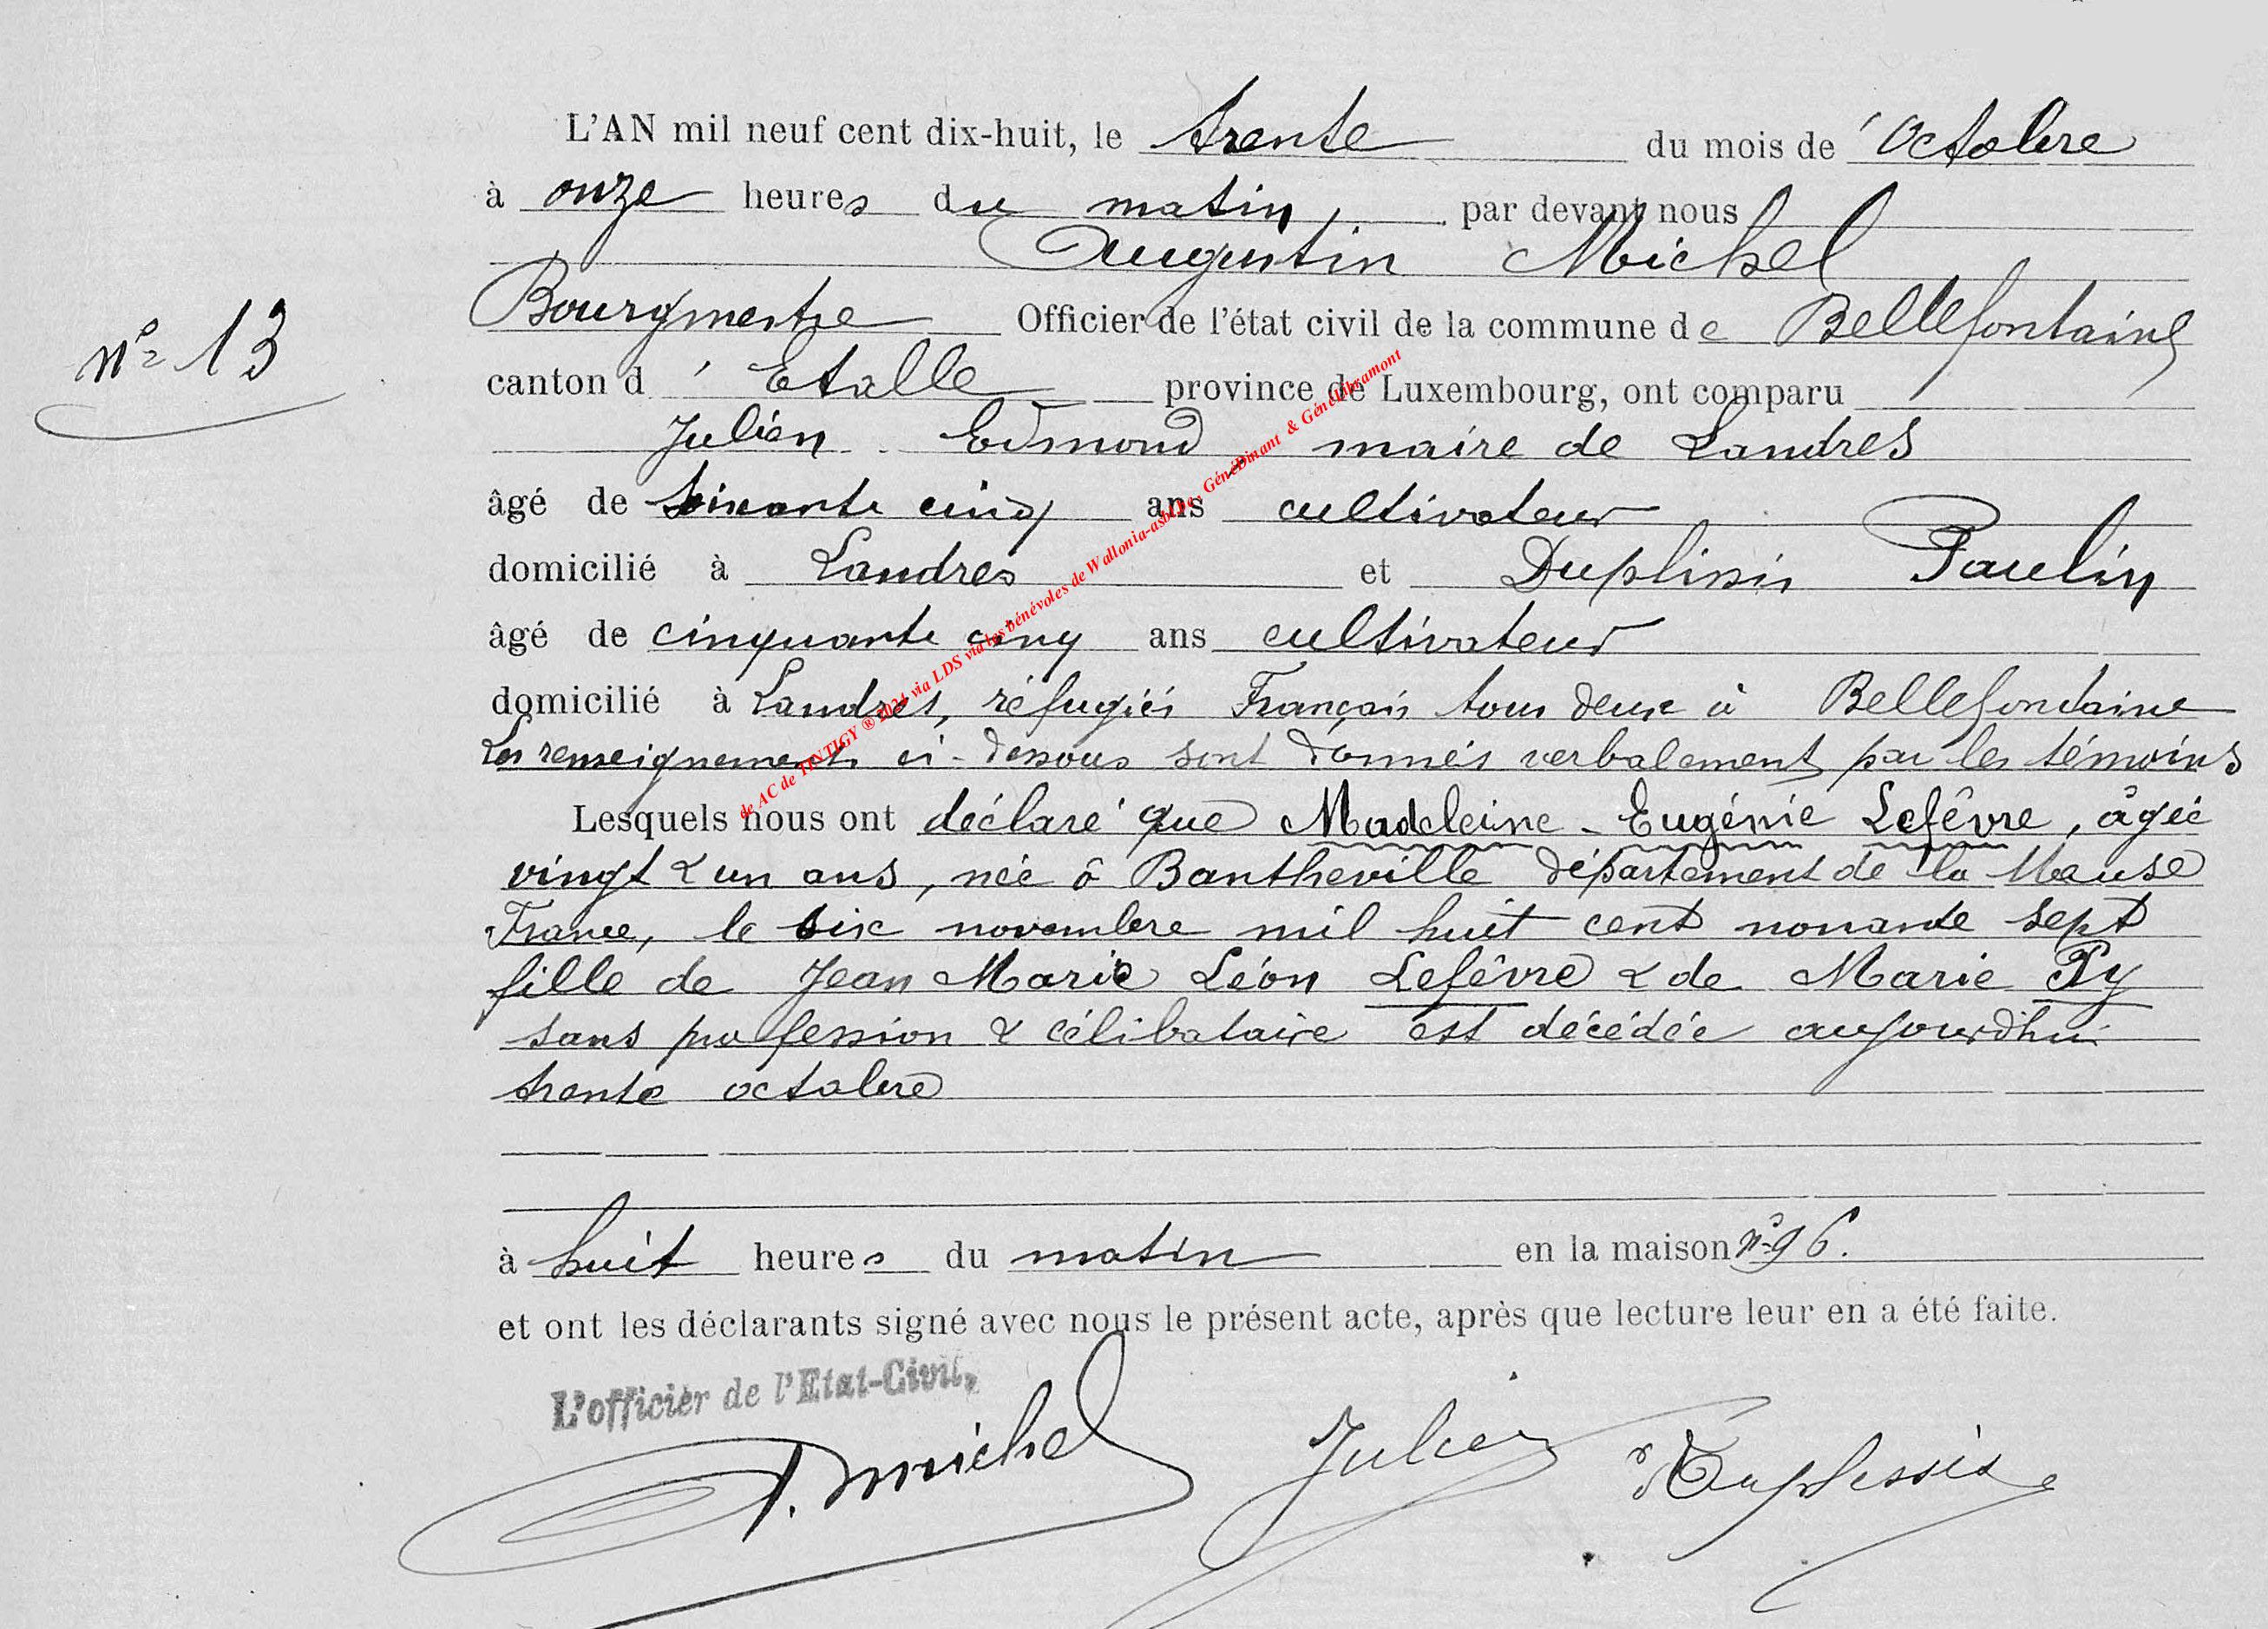 L'AN mil neuf cent dix-huit, le trente du mois de Octobre
à onze heures du matin, par devant nous
Augustin Michel
Bourgmestre Officier de l'état civil de la commune de Bellefontaine
n° 13
canton d'Etalle province de Luxembourg, ont comparu
Julien Edmond maire de Landres
âgé de soixante cinq ans cultivateur
domicilié à Landres et Duplissis Paulin
âgé de cinquante cinq ans cultivateur
domicilié à Landres, réfugiés Français tous deux à Bellefontaine
Les renseignements ci-dessous sont donnés verbalement par les témoins
Lesquels nous ont déclaré que Madeleine - Eugénie Lefêvre, âgée
vingt & un ans, née à Bantheville département de la Meuse
France, le six novembre mil huit cent nonante sept
fille de Jean Marie Léon Lefêvre & de Marie Py
sans profession & célibataire est décédée aujourd'hui
trente octobre
à huit heures du matin en la maison n° 96.
et ont les déclarants signé avec nous le présent acte, après que lecture leur en a été faite.
L'officier de l'Etat-Civil,
A. Michel Julien Duplessis
de AC de TINTIGY ® 2024 via LDS via les bénévoles de Wallonia-asbl.be, GénéDinant & Génélibramont